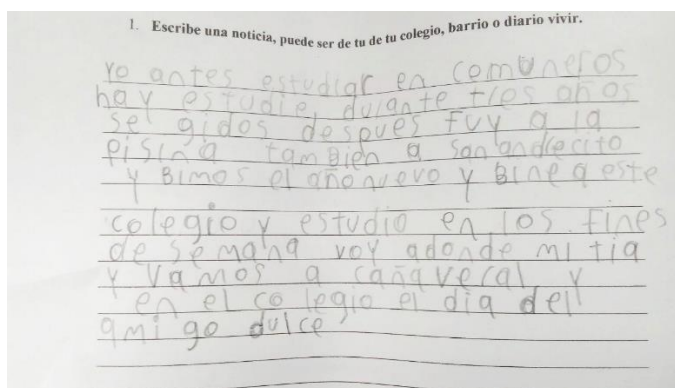 1. Escribe una noticia, puede ser de tu de tu colegio, barrio o diario vivir.
Yo antes estudiar en comuneros
hay estudie, durante tres años
se gidos despues fuy a la
pisina tambien a san andrecito
y Bimos el año nuevo y Bine a este
colegio y estudio en los fines
de semana voy adonde mi tia
y vamos a cañaveral y
en el co legio el dia del
ami go dulce